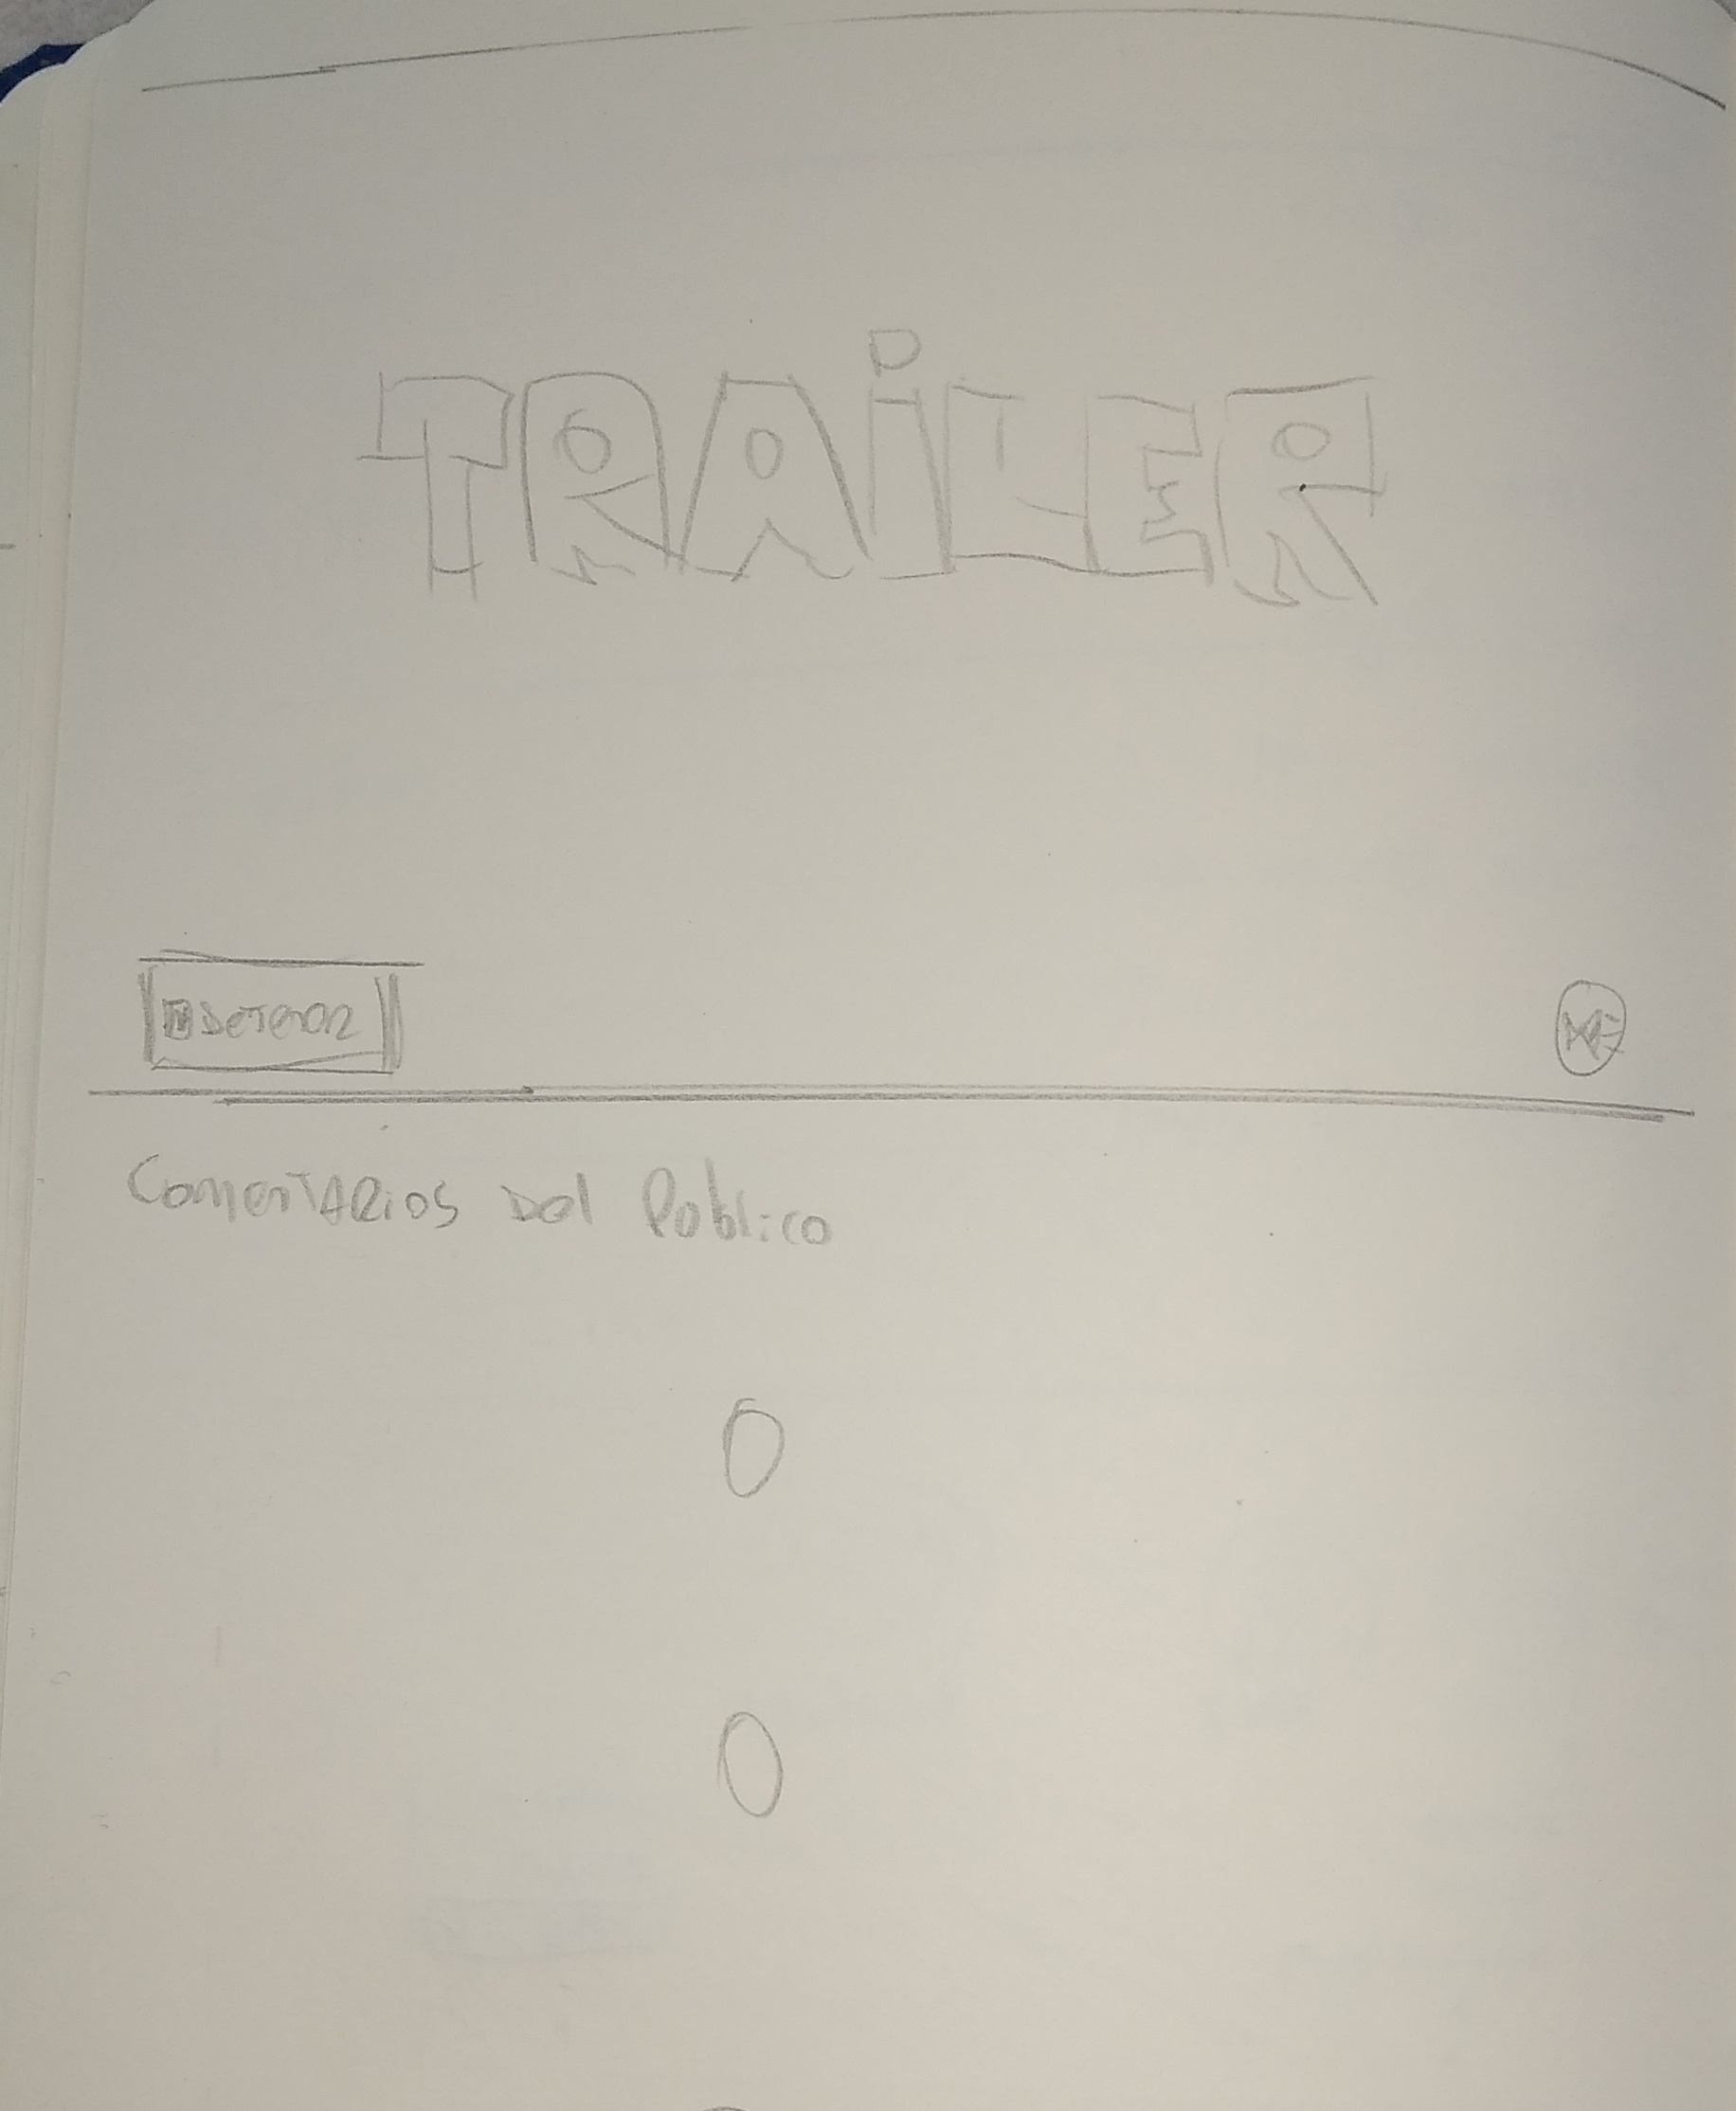 TRAiLER
Detener
Comentarios Del Publico